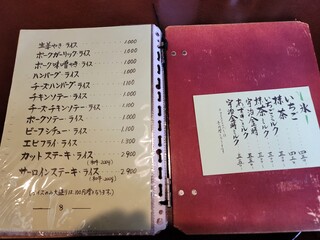 生姜やき・ライス 1000
ポークガーリック・ライス 1000
ポーク味噌やき・ライス 1000
ハンバーグ・ライス 1000
チーズハンバーグ・ライス 1100
チキンソテー・ライス 1000
チーズチキンソテー・ライス 1100
ポークソテー・ライス 1000
ビーフシチュー・ライス 1100
エビフライ・ライス 1300
カットステーキ・ライス 2900
サーロインステーキ・ライス 2900
8
氷
いちご
抹茶
いちごミルク
抹茶ミルク
あずきミルク
宇治金時
宇治金時ミルク